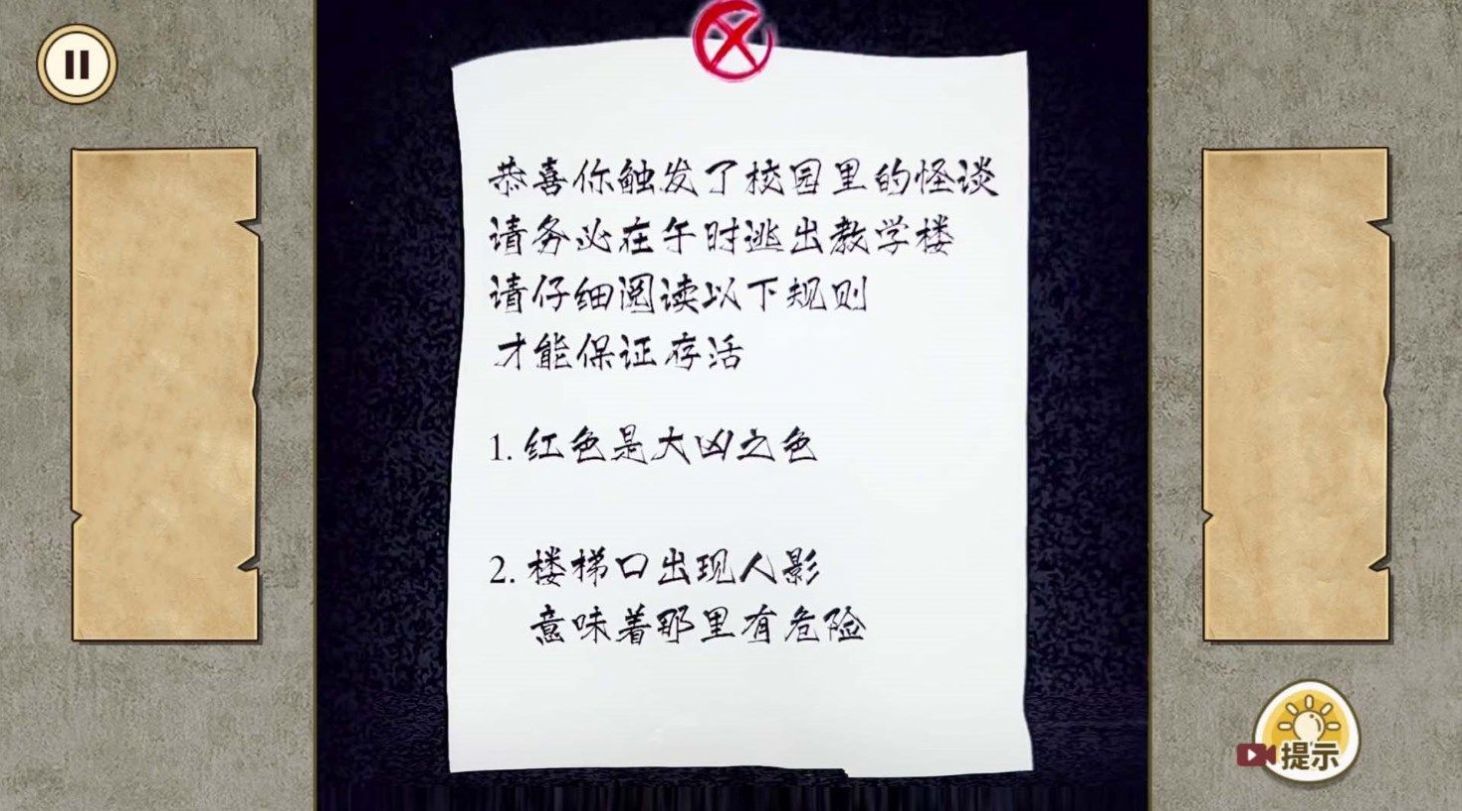 恭喜你触发了校园里的怪谈
请务必在午时逃出教学楼
请仔细阅读以下规则
才能保证存活
1. 红色是大凶之色
2. 楼梯口出现人影
意味着那里有危险
提示